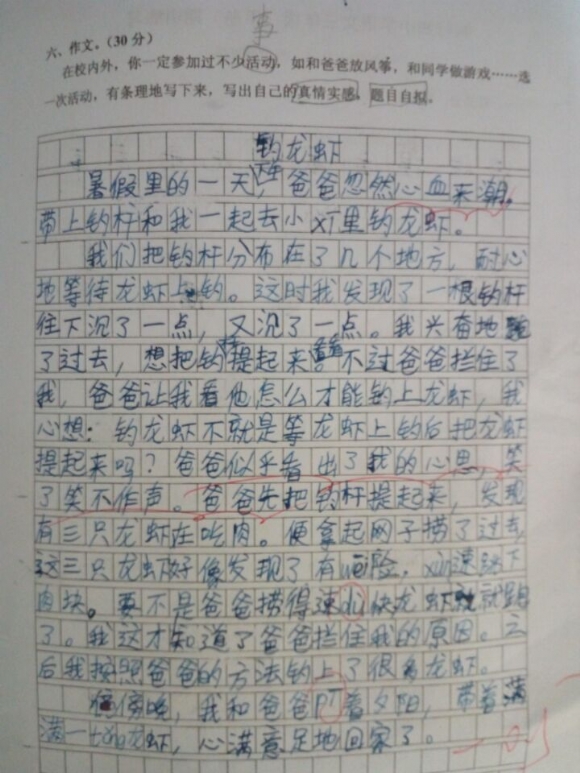 事
六、作文。(30分)
在校内外，你一定参加过不少活动，如和爸爸放风筝，和同学做游戏……选
一次活动，有条理地写下来，写出自己的真情实感，题目自拟。
钓龙虾
暑假里的一天，爸爸忽然心血来潮。
带上钓杆和我一起去小xī里钓龙虾。
我们把钓杆分布在了几个地方，耐心
地等待龙虾上钩。这时我发现了一根钓杆
往下沉了一点，又沉了一点。我兴奋地跑
了过去，想把钓提起来。不过爸爸拦住了
我，爸爸让我看他怎么才能钓上龙虾，我
心想：钓龙虾不就是等龙虾上钩后把龙虾
提起来吗？爸爸似乎看出了我的心思，笑
了笑不作声。爸爸先把钓杆提起来，发现
有三只龙虾在吃肉。便拿起网子捞了过去
这三只龙虾好像发现了有wēi险，xùn速跳下
肉块。要不是爸爸捞得速dù快龙虾就跑
了。我这才知道了爸爸拦住我的原因。云
后我按照爸爸的方法钓上了很多龙虾。
傍晚，我和爸爸yíng着夕阳，带着满
满一tǒng龙虾，心满意足地回家了。